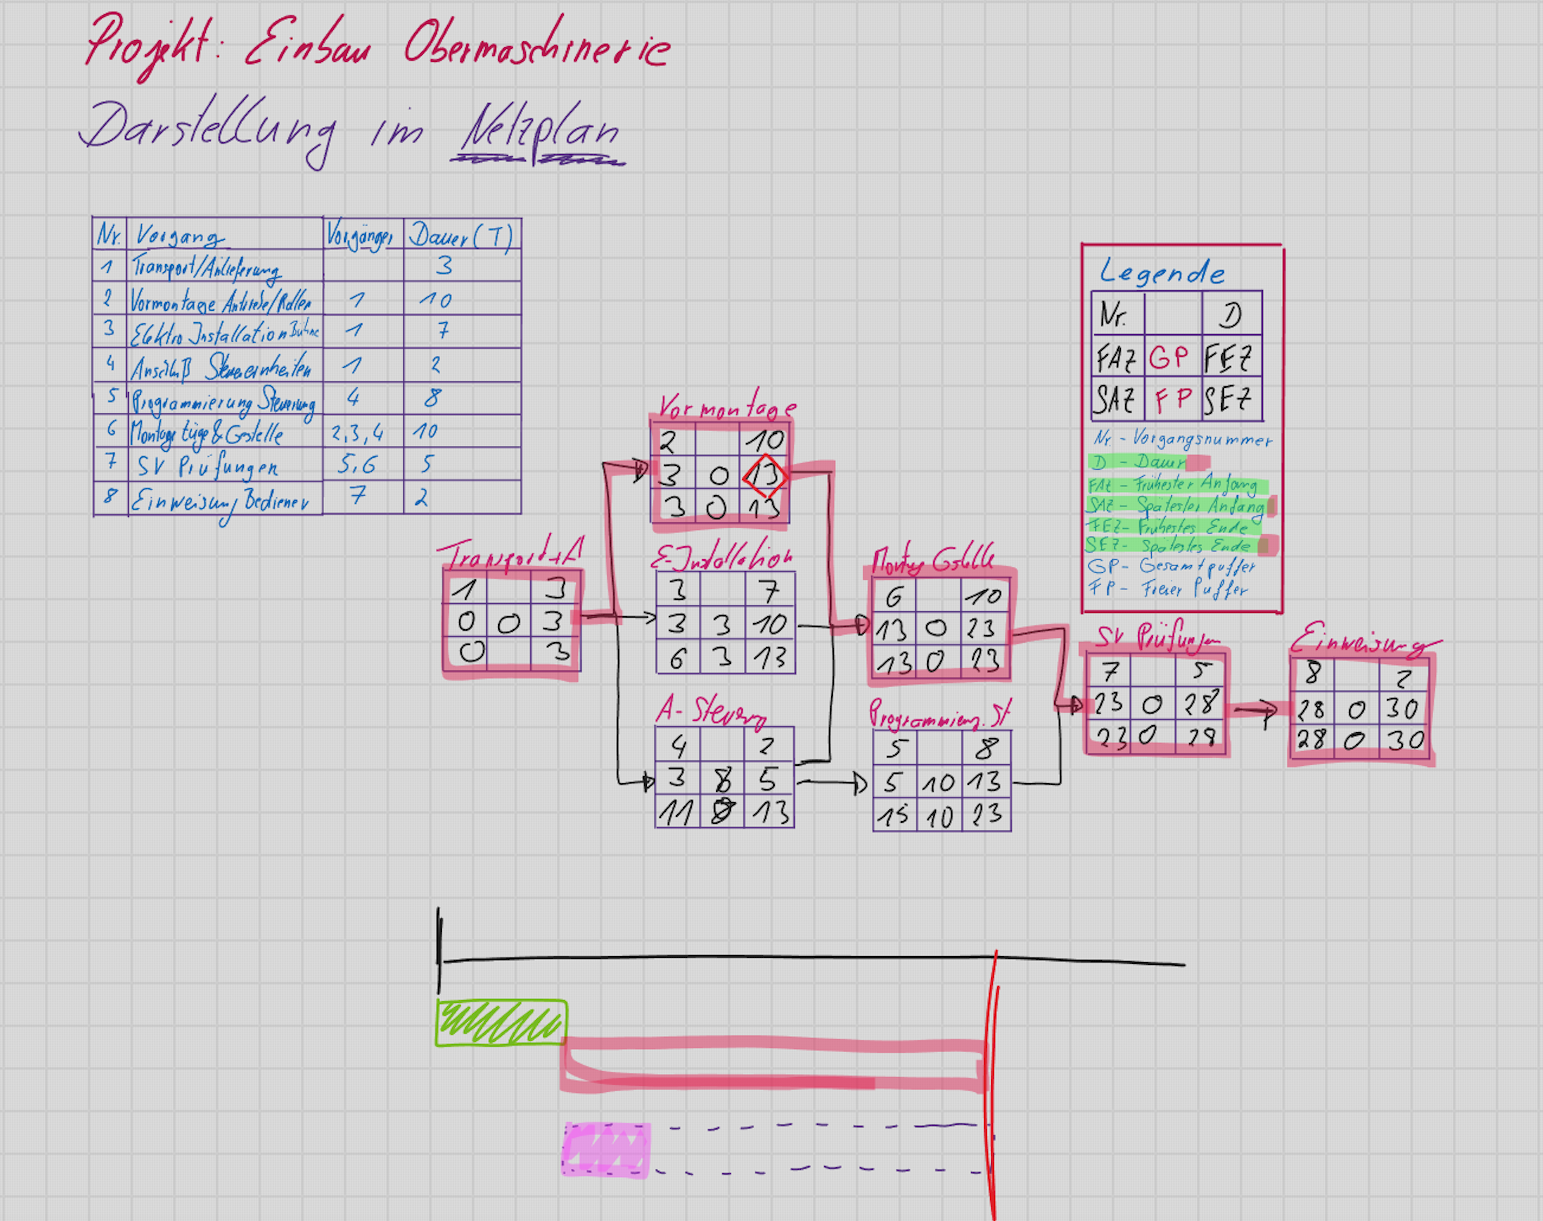 Projekt: Einbau Obermaschinerie
Darstellung im Netzplan
Nr. Vorgang Vorgänger Dauer (T)
1 Transport/Anlieferung 3
2 Vormontage Antriebe/Rollen 1 10
3 Elektro Installation Bühne 1 7
4 Anschluß Steuereinheiten 1 2
5 Programmierung Steuerung 4 8
6 Montage Züge & Gestelle 2,3,4 10
7 SV Prüfungen 5,6 5
8 Einweisung Bediener 7 2
Legende
Nr. D
FAZ GP FEZ
SAZ FP SEZ
Nr - Vorgangsnummer
D - Dauer
FAZ - Frühester Anfang
SAZ - Spätester Anfang
FEZ - Frühestes Ende
SEZ - Spätestes Ende
GP - Gesamtpuffer
FP - Freier Puffer
Transport + A
1 3
0 0 3
0 3
Vormontage
2 10
3 0 13
3 0 13
E-Installation
3 7
3 3 10
6 3 13
A-Steuerung
4 2
3 8 5
11 8 13
Montage Gstelle
6 10
13 0 23
13 0 23
Programmierung. St
5 8
5 10 13
15 10 23
SV Prüfungen
7 5
23 0 28
23 0 28
Einweisung
8 2
28 0 30
28 0 30